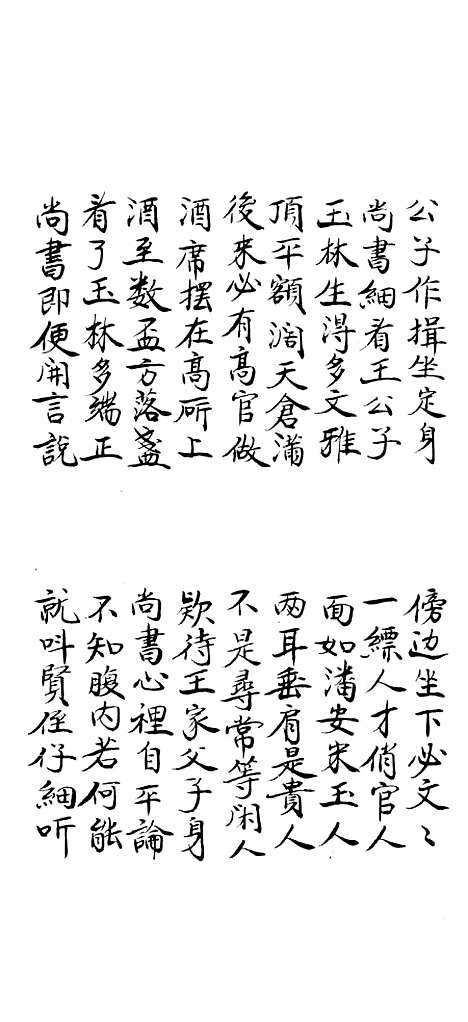 公子作揖坐定身
傍边坐下必文〻
尚書細看王公子
一縹人才俏官人
玉林生得多文雅
面如潘安宋玉人
頂平額濶天倉滿
两耳垂肩是貴人
後来必有高官做
不是尋常等閑人
酒席摆在高所上
欵待王家父子身
酒至数盃方落盞
尚書心裡自平論
看了玉林多端正
不知腹内若何能
尚書即便開言說
就呌賢侄仔細听